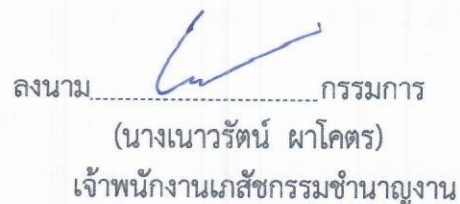 ลงนาม........................................กรรมการ
(นางเนาวรัตน์ ผาโคตร)
เจ้าพนักงานเภสัชกรรมชำนาญงาน